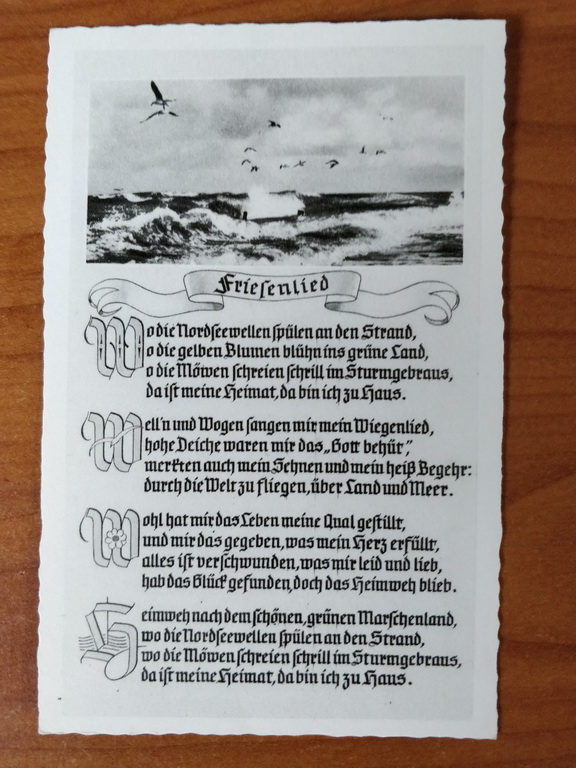 Friesenlied
Wo die Nordseewellen spülen an den Strand,
o die gelben Blumen blühn ins grüne Land,
o die Möwen schreien schrill im Sturmgebraus,
da ist meine Heimat, da bin ich zu Haus.
Well'n und Wogen sangen mir mein Wiegenlied,
hohe Deiche waren mir das „Gott behüt",
merkten auch mein Sehnen und mein heiß Begehr:
durch die Welt zu fliegen, über Land und Meer.
Wohl hat mir das Leben meine Qual gestillt,
und mir das gegeben, was mein Herz erfüllt,
alles ist verschwunden, was mir leid und lieb,
hab das Glück gefunden, doch das Heimweh blieb.
Heimweh nach dem schönen, grünen Marschenland,
wo die Nordseewellen spülen an den Strand,
wo die Möwen schreien schrill im Sturmgebraus,
da ist meine Heimat, da bin ich zu Haus.